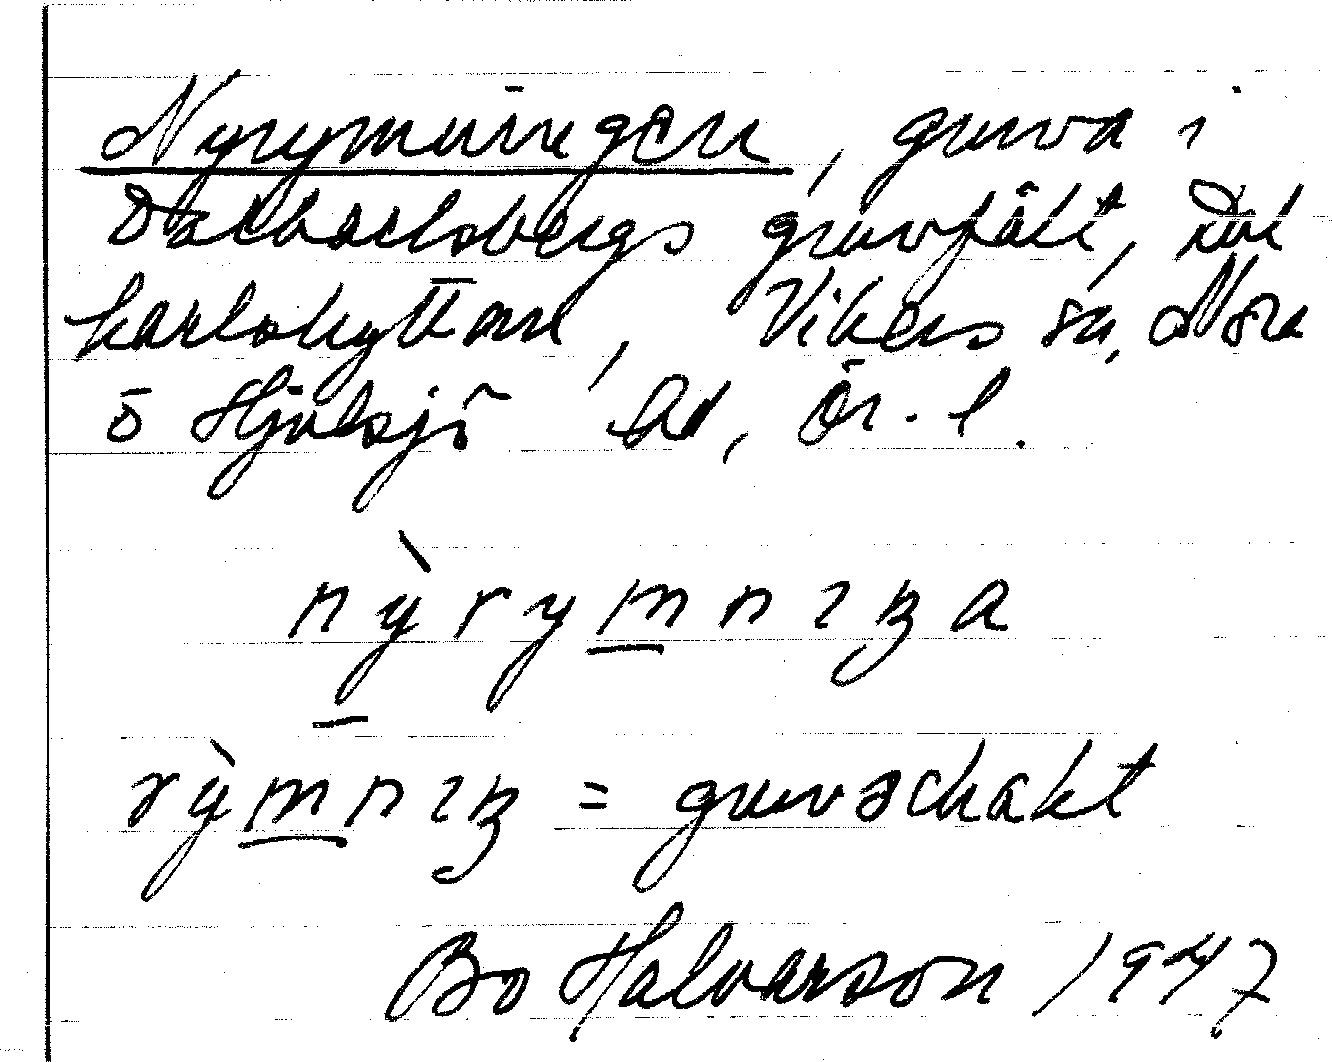 Nyrymningen, gruva i
Dalkarlsbergs gruvfält, Dal
karlshyttan, Vikers sn, Nora
o Hjulsjö bd, Ör. l.
nỳrymnıŋa
rỳmnıŋ = gruvschakt
Bo Halvarson 1947